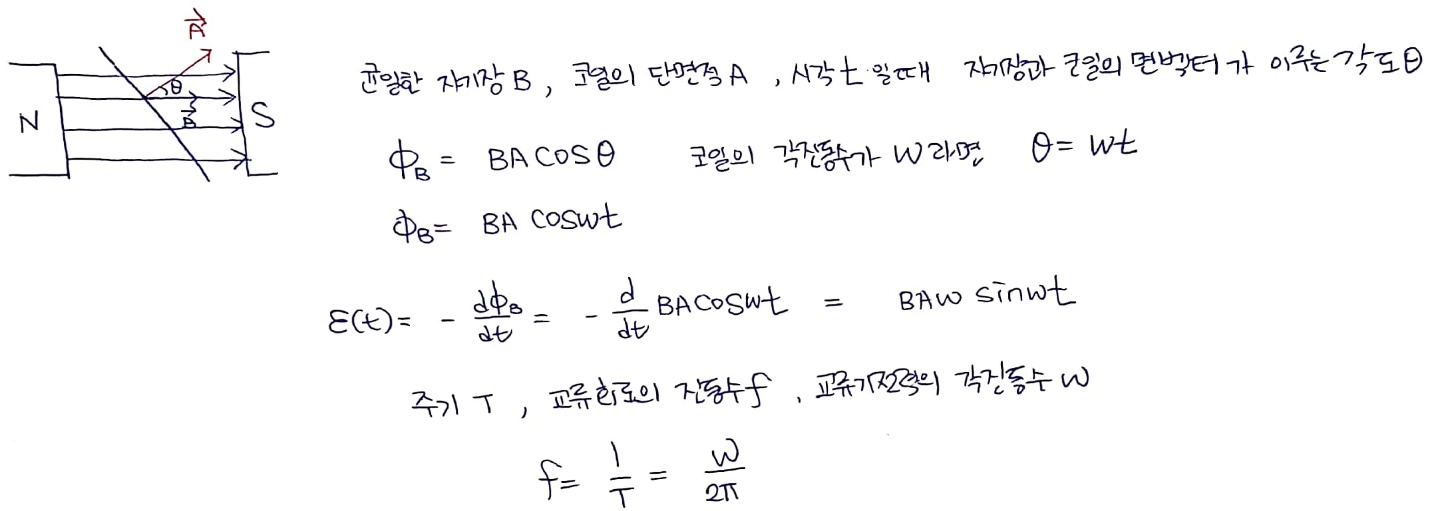 A⃗
θ
B⃗
N
S
균일한 자기장 B, 코일의 단면적 A, 시각 t 일때 자기장과 코일의 면벡터가 이루는 각도 θ
ϕ_B = BA cosθ 코일의 각진동수가 w라면 θ = wt
ϕ_B = BA coswt
ε(t) = - dϕ_B/dt = - d/dt BA coswt = BAw sinwt
주기 T, 교류회로의 진동수 f, 교류기전력의 각진동수 w
f = 1/T = w/2π